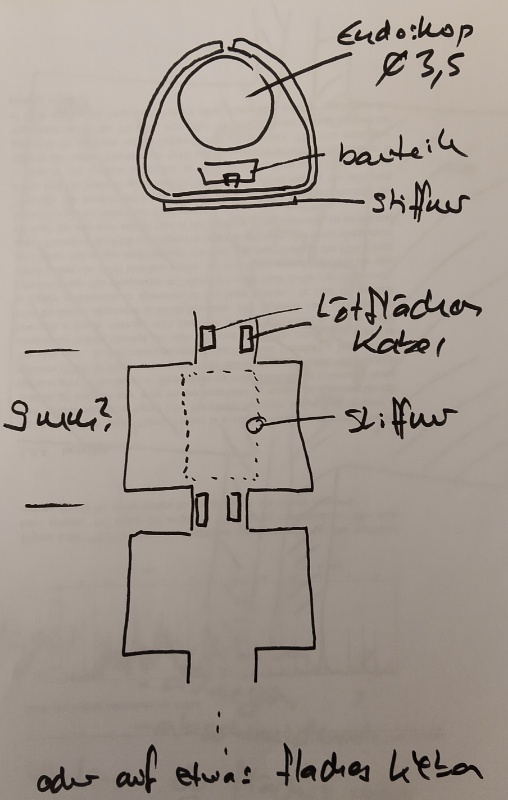 Endoskop
Ø 3,5
bauteile
stiffner
Lötflächen
Kabel
9 mm?
stiffner
oder auf etwas flaches kleben